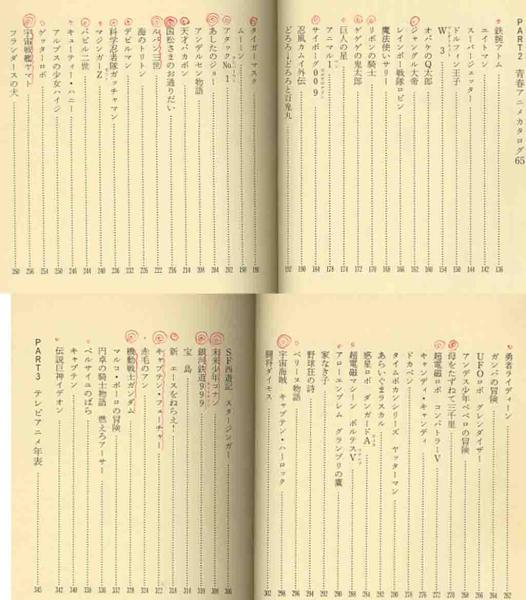 PART2 青春アニメカタログ65
鉄腕アトム
エイトマン
スーパージェッター
ドルフィン王子
W3
オバケのQ太郎
ジャングル大帝
レインボー戦隊ロビン
魔法使いサリー
リボンの騎士
ゲゲゲの鬼太郎
巨人の星
アニマル1
サイボーグ009
忍風カムイ外伝
どろろ→どろろと百鬼丸
タイガーマスク
ムーミン
アタックNo.1
あしたのジョー
アンデルセン物語
天才バカボン
国松さまのお通りだい
ルパン三世
海のトリトン
デビルマン
科学忍者隊ガッチャマン
マジンガーZ
バビル二世
キューティー・ハニー
アルプスの少女ハイジ
ゲッターロボ
宇宙戦艦ヤマト
フランダースの犬
勇者ライディーン
ガンバの冒険
UFOロボ グレンダイザー
アンデス少年ペペロの冒険
母をたずねて三千里
超電磁ロボ コンバトラーV
キャンディ・キャンディ
ドカベン
タイムボカンシリーズ ヤッターマン
あらいぐまラスカル
惑星ロボ ダンガードA
超電磁マシーン ボルテスV
アローエンブレム グランプリの鷹
家なき子
野球狂の詩
ペリーヌ物語
宇宙海賊 キャプテン・ハーロック
闘将ダイモス
SF西遊記 スタージンガー
未来少年コナン
銀河鉄道999
宝島
新 エースをねらえ!
キャプテン・フューチャー
赤毛のアン
機動戦士ガンダム
マルコ・ポーロの冒険
円卓の騎士物語 燃えろアーサー
ベルサイユのばら
キャプテン
伝説巨神イデオン
PART3 テレビアニメ年表
345